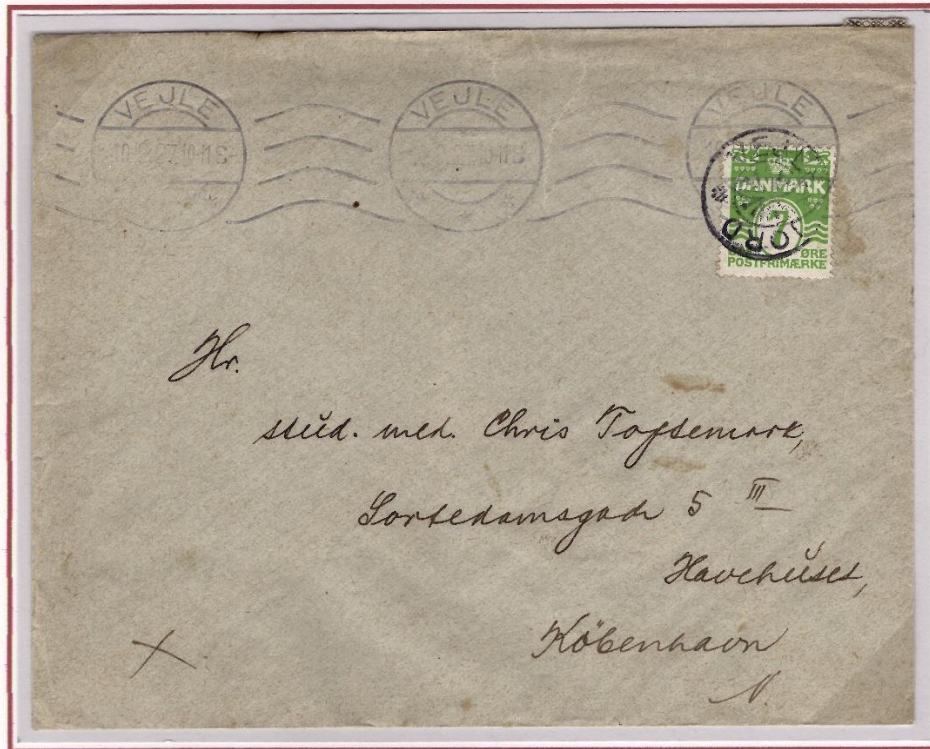 VEJLE VEJLE VEJLE
DANMARK
7
ØRE
POSTFRIMÆRKE
Hr.
stud. med. Chris Toftemark,
Sortedamsgade 5 III
Havehuset,
København
N.